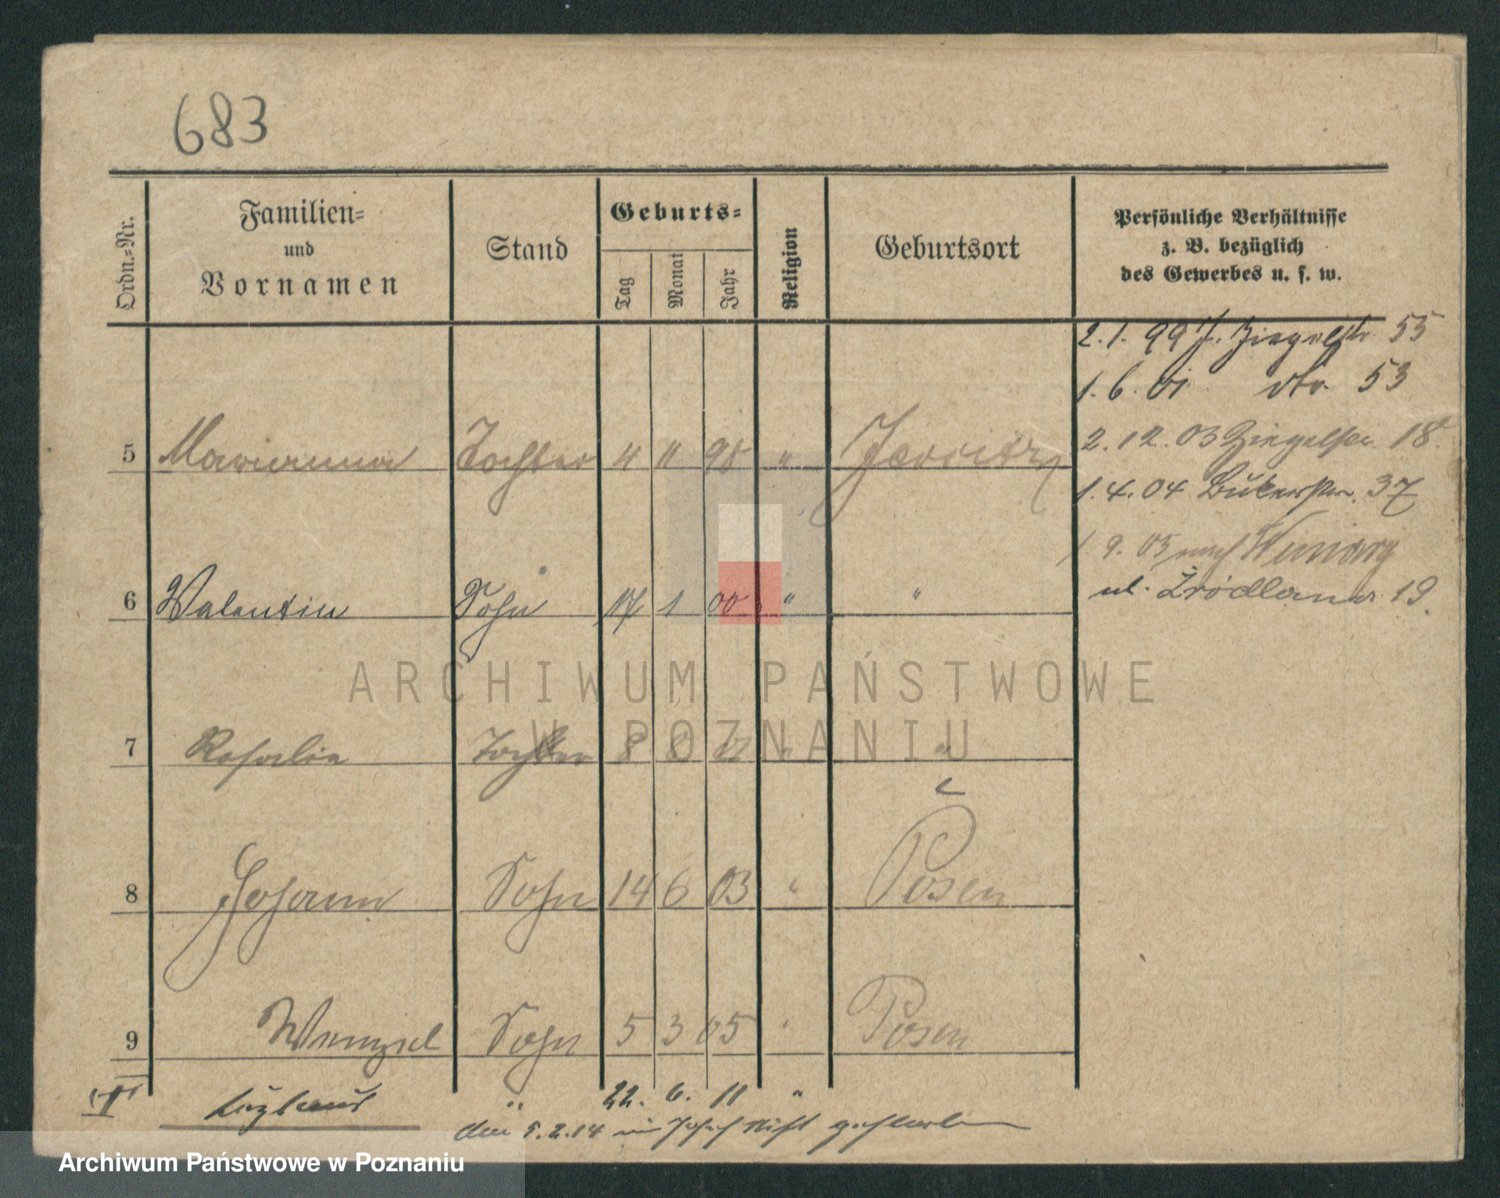 683
Ordn.=Nr. Familien= und Vornamen Stand Geburts= Tag Monat Jahr Religion Geburtsort Persönliche Verhältnisse z. B. bezüglich des Gewerbes u. s. w.
2.1.99 J. Ziegelstr 55
1.6.01 dto 53
5 Marianna Tochter 4 11 98 "
2.12.03 Ziegelstr. 18
1.4.04 Bukerstr. 37
1 9. 05 nach Winiary
6 Valentin Sohn 17 1 00 " "
ul. Źródlana 19.
ARCHIWUM PAŃSTWOWE
W POZNANIU
7 Rosalie Tochter 8 8 " "
8 Johann Sohn 14 6 03 " Posen
9 Wenzel Sohn 5 3 05 " Posen
" 22. 6. 11 "
den 5.2.14 im Josef Stift gestorben
Archiwum Państwowe w Poznaniu